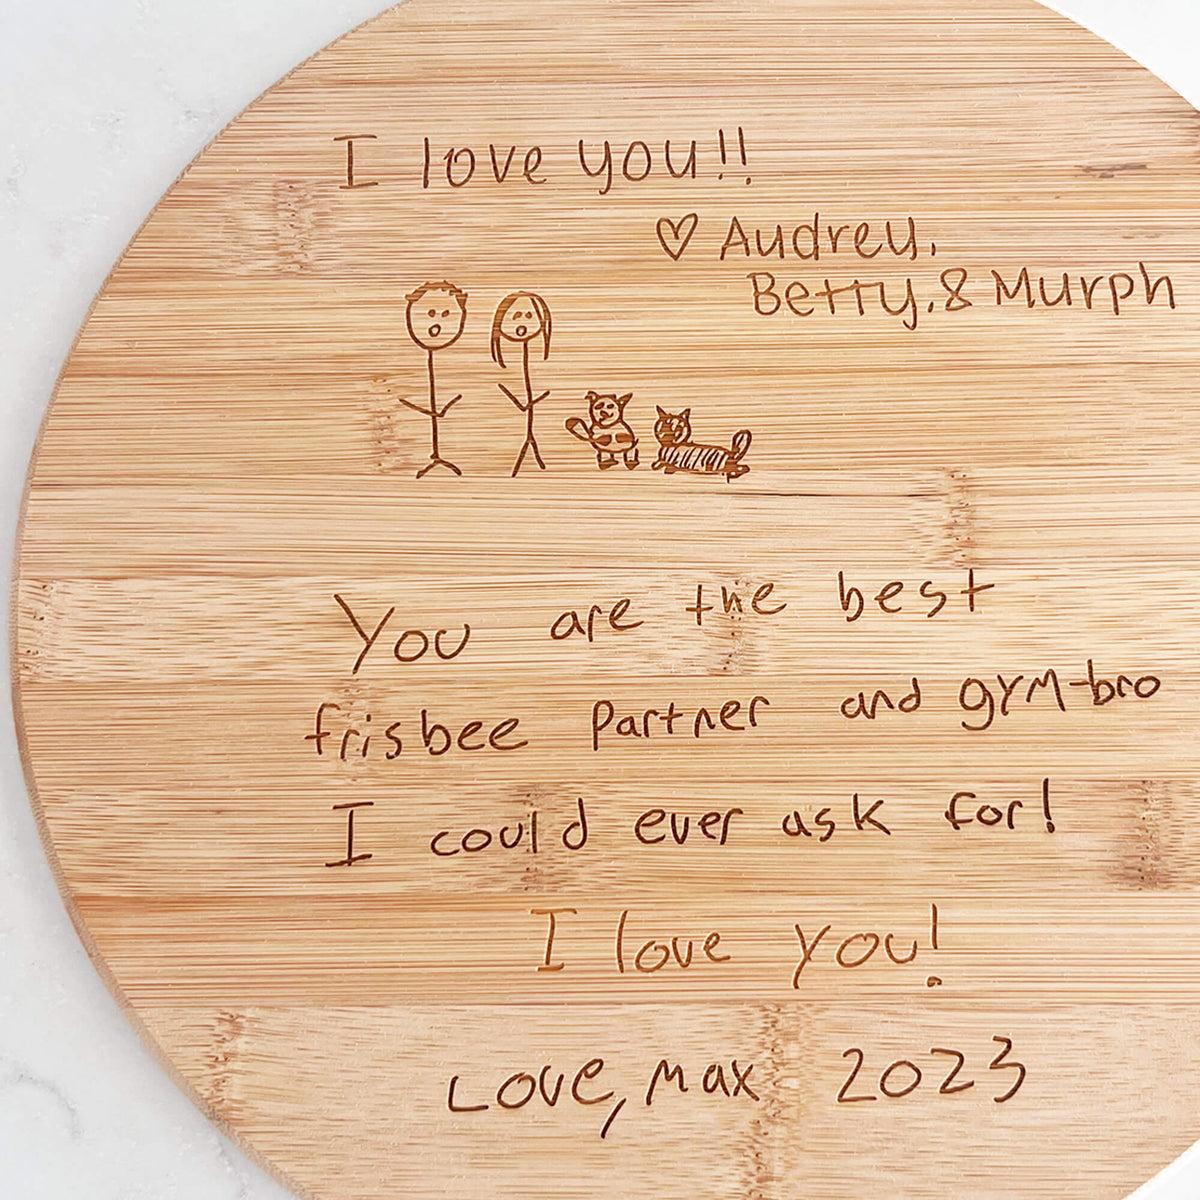 I love you!!
♡ Audrey,
Betty, & Murph
You are the best
frisbee Partner and gym-bro
I could ever ask for!
I love you!
Love, Max 2023